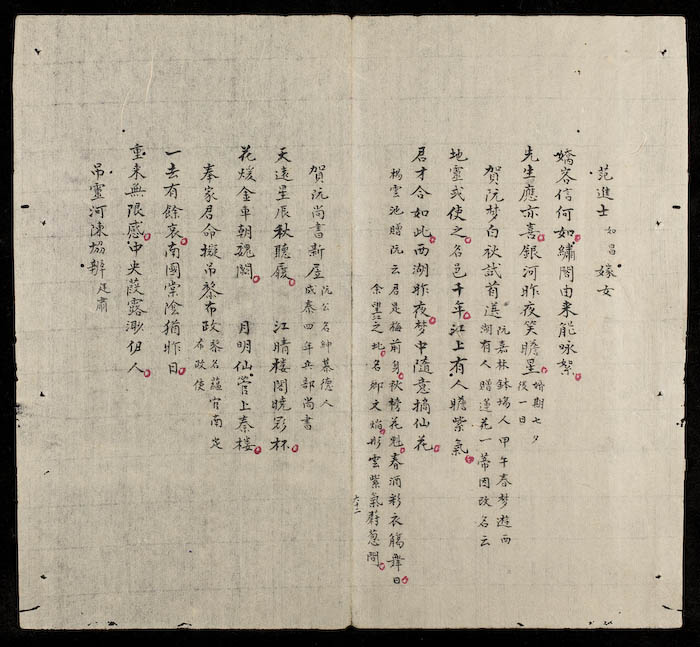 范進士如昌嫁女
嬌容信何如繡閣由来能咏絮
先生應亦喜銀河昨夜笑瞻星婚期七夕後一日
賀阮梦白秋試首選阮嘉林鉢塲人甲午春梦遊西湖有人贈蓮花一蒂因改名云
地靈或使之名邑千年江上有人瞻紫氣
君才合如此西湖昨夜梦中隨意摘仙花
楊雲池贈阮云君是梅前身秋榜花魁春酒彩衣觴舞日
余望江之北名鄉文焰彤雲紫氣蔚葱間
六十二
賀阮尚書新屋阮公名紳慕德人成泰四年兵部尚書
天遠星辰秋聽履 江晴樓閣曉彩杯
花煖金車朝魏闕 月明仙管上秦樓
奉家君命擬吊黎布政黎名蘊官南定布政使
一去有餘哀南國棠陰猶昨日
重来無限感中央葭露溯伊人
吊靈河陳協辦廷肅